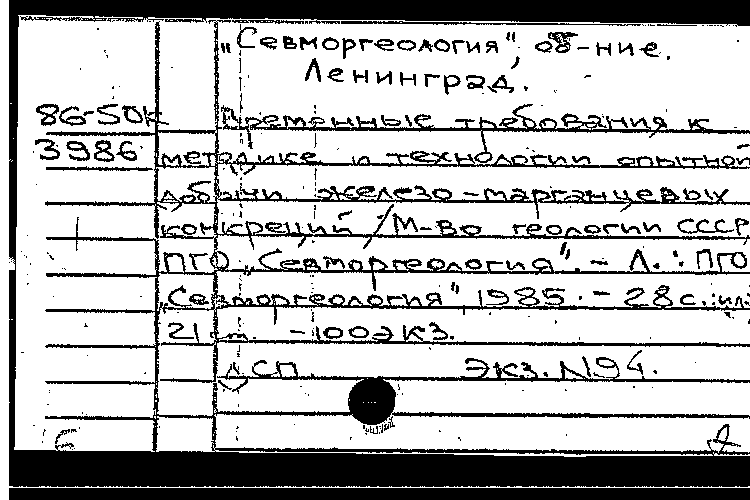 „Севморгеология", об-ние.
Ленинград.
86-50К Временные требования к
3986 методике и технологии опытной
добычи железо-марганцевых
конкреций / М-во геологии СССР,
ПГО „Севморгеология". - Л.: ПГО
„Севморгеология" 1985. - 28с.: ил.
21 см - 100экз.
ДСП. Экз. N94.
Б